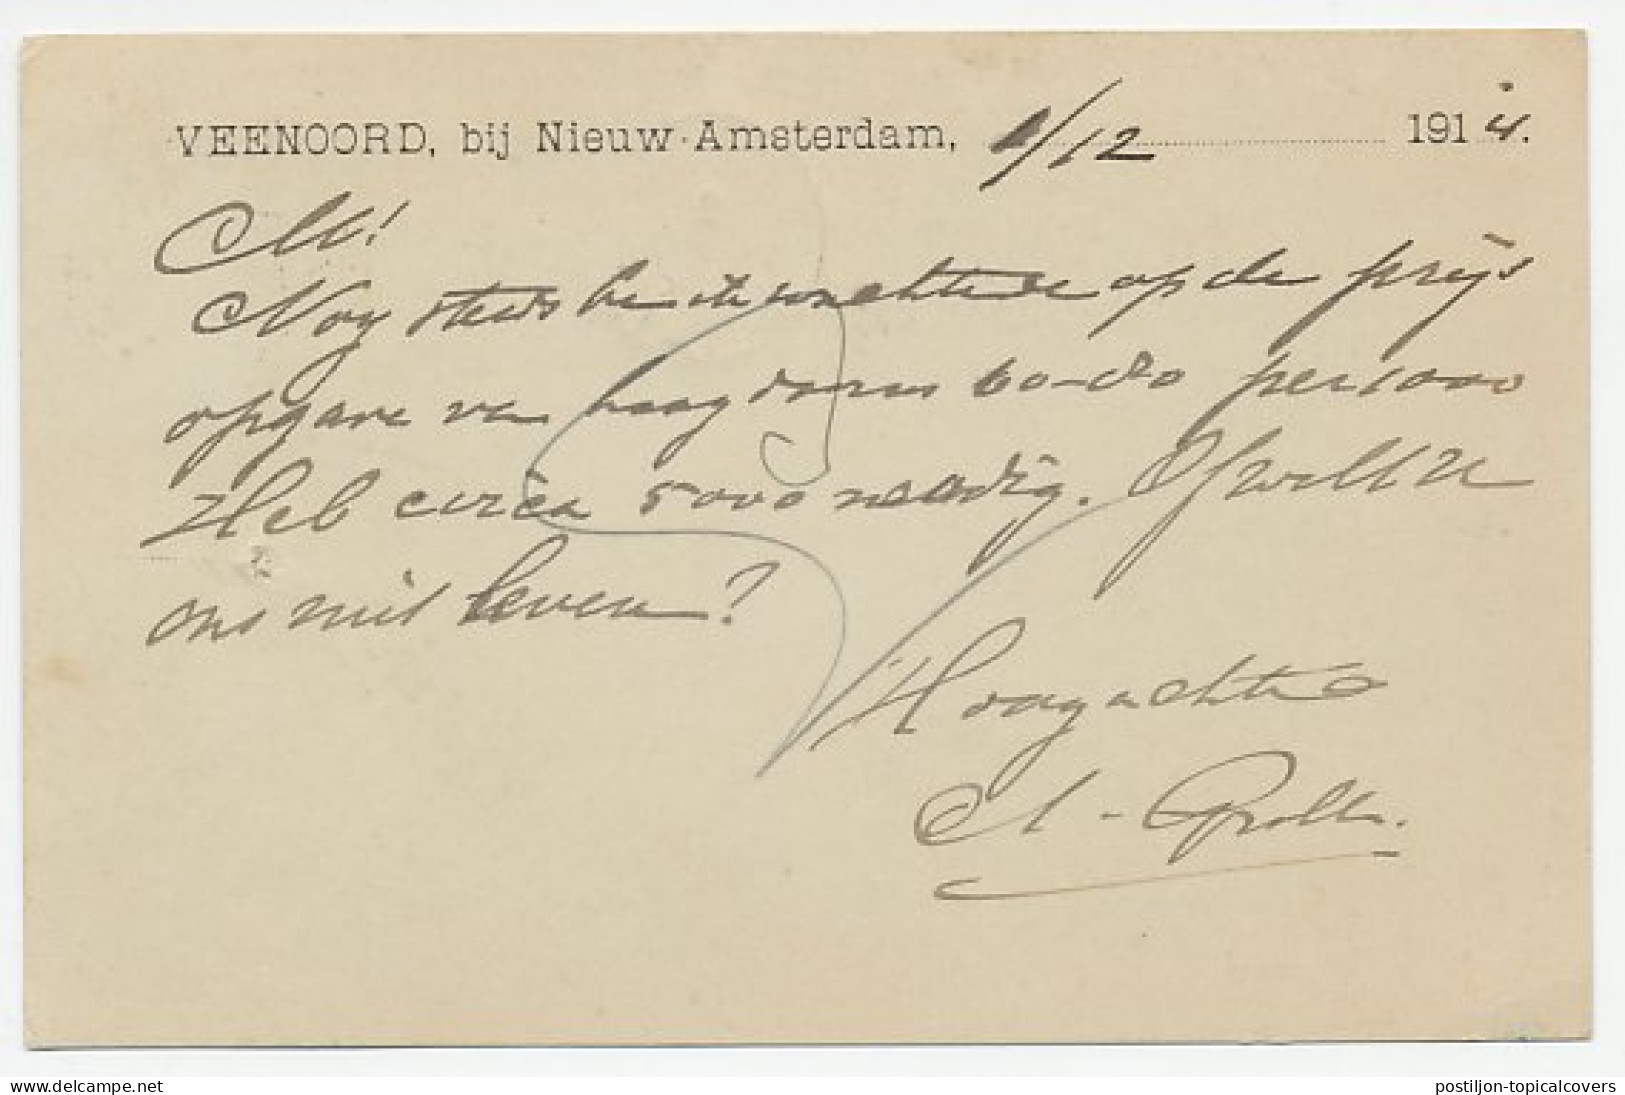 VEENOORD, bij Nieuw-Amsterdam, 1/12 1914.
M!
Nog steeds ben ik wachtende op de prijs
opgave van haagdoorns 60-80 per 1000
Heb circa 5000 noodig. Of wilt U
ons niet leveren?
Hoogachtend
A.
delcampe.net
postiljon-topicalcovers